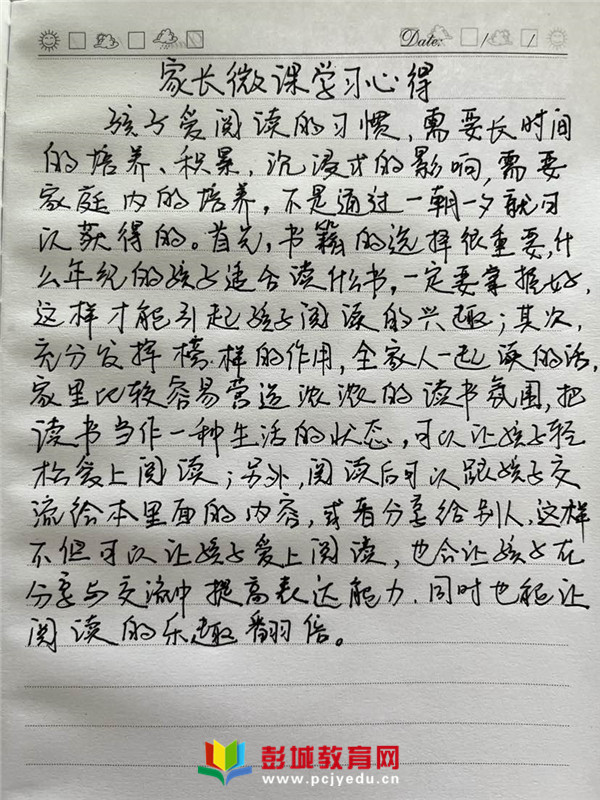 Date: / /
家长微课学习心得
孩子爱阅读的习惯,需要长时间
的培养、积累,沉浸式的影响,需要
家庭内的培养,不是通过一朝一夕就可
以获得的。首先,书籍的选择很重要,什
么年纪的孩子适合读什么书,一定要掌握好,
这样才能引起孩子阅读的兴趣;其次,
充分发挥榜样的作用,全家人一起读的话,
家里比较容易营造浓浓的读书氛围,把
读书当作一种生活的状态,可以让孩子轻
松爱上阅读;另外,阅读后可以跟孩子交
流绘本里面的内容,或者分享给别人,这样
不但可以让孩子爱上阅读,也会让孩子在
分享与交流中提高表达能力.同时也能让
阅读的乐趣翻倍。
彭城教育网
www.pcjyedu.cn